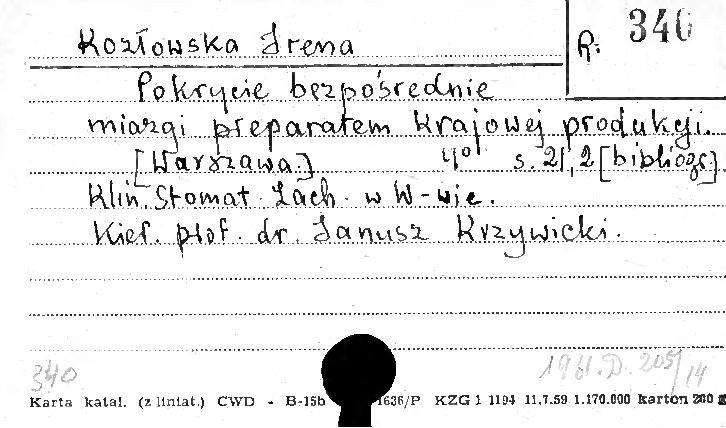 R. 340
Kozłowska Irena
Pokrycie bezpośrednie
miazgi preparatem krajowej produkcji.
[Warszawa.] s. 21, 2 [bibliogr.].
Klin. Stomat. Zach. w W-wie.
Kier. prof. dr. Janusz Krzywicki.
340 1961.D. 205/14
Karta katal. (z liniat.) CWD - B-15b 1636/P KZG 1 1194 11.7.59 1.170.000 karton 200 g